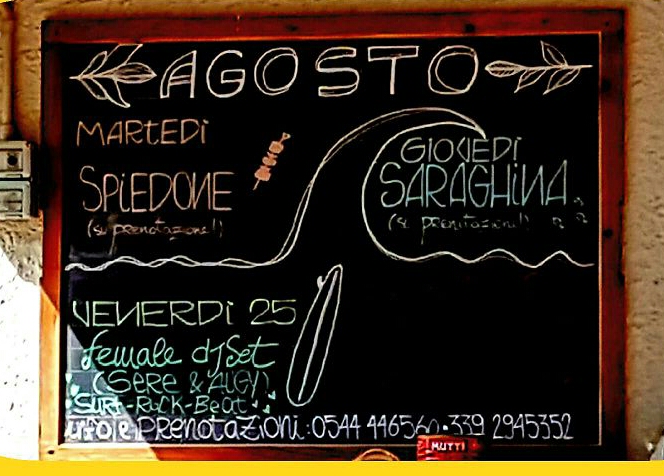 AGOSTO
MARTEDì
SPiEDONE
(su prenotazione!)
GIOVEDì
SARAGHiNA
(su prenotazione!)
VENERDì 25
female dj Set
(SERE & AUGY)
SURF-ROCK-Beat
info e PRENOTAZiONi: 0544 446560 • 339 2945352
MUTTI